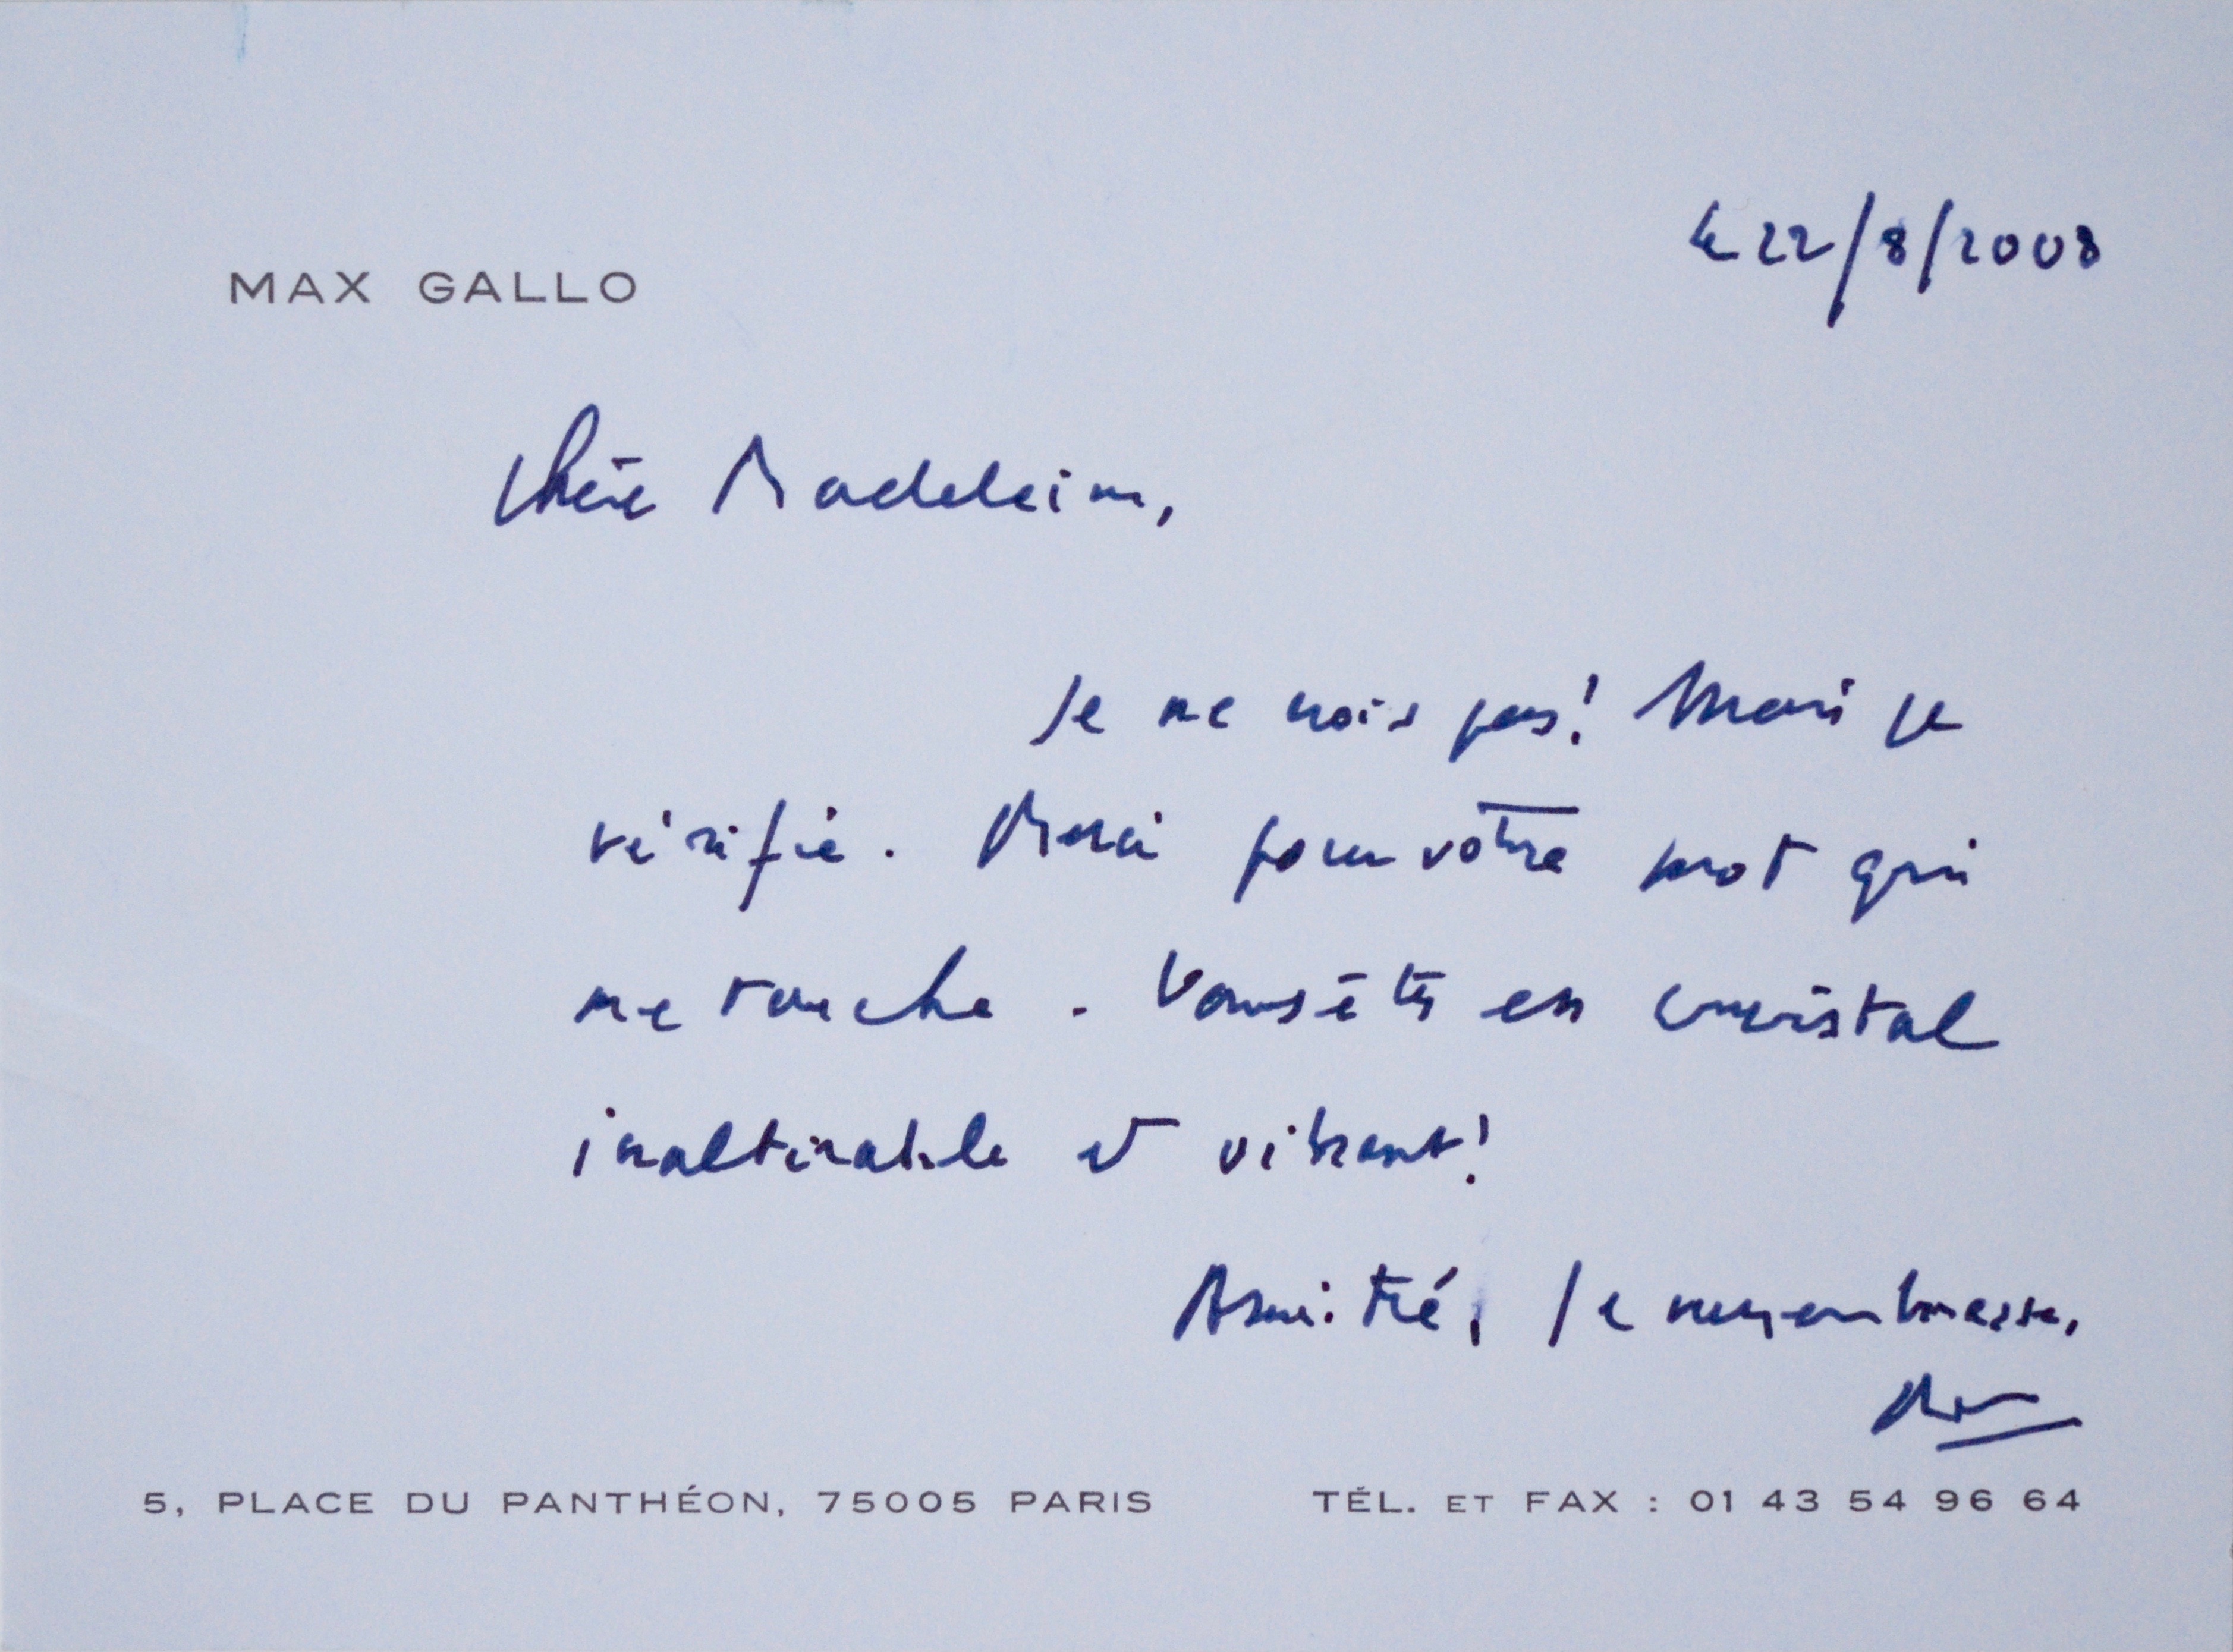 MAX GALLO
le 22/8/2008
Chère Madeleine,
Je ne crois pas! Mais je
vérifie. Merci pour votre mot qui
me touche. Vous êtes en cristal
inaltérable et vibrant!
Amitié, Je vous embrasse,
Max
5, PLACE DU PANTHÉON, 75005 PARIS TÉL. ET FAX : 01 43 54 96 64